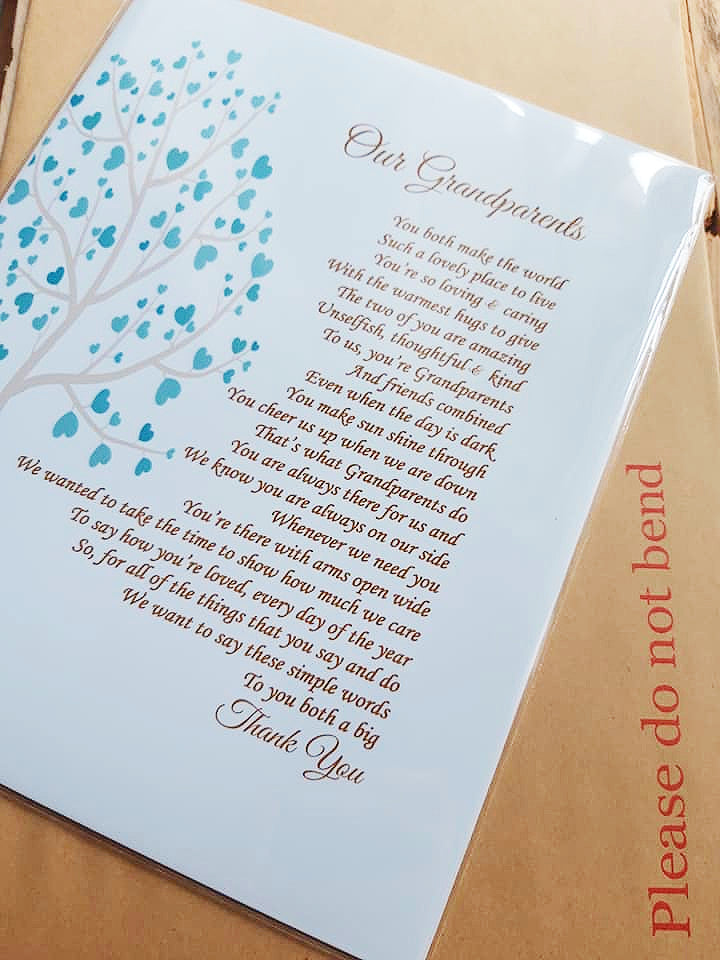 Our Grandparents
You both make the world
Such a lovely place to live
You're so loving & caring
With the warmest hugs to give
The two of you are amazing
Unselfish, thoughtful & kind
To us, you're Grandparents
And friends combined
Even when the day is dark
You make sun shine through
You cheer us up when we are down
That's what Grandparents do
You are always there for us and
We know you are always on our side
Whenever we need you
You're there with arms open wide
We wanted to take the time to show how much we care
To say how you're loved, every day of the year
So, for all of the things that you say and do
We want to say these simple words
To you both a big
Thank You
Please do not bend